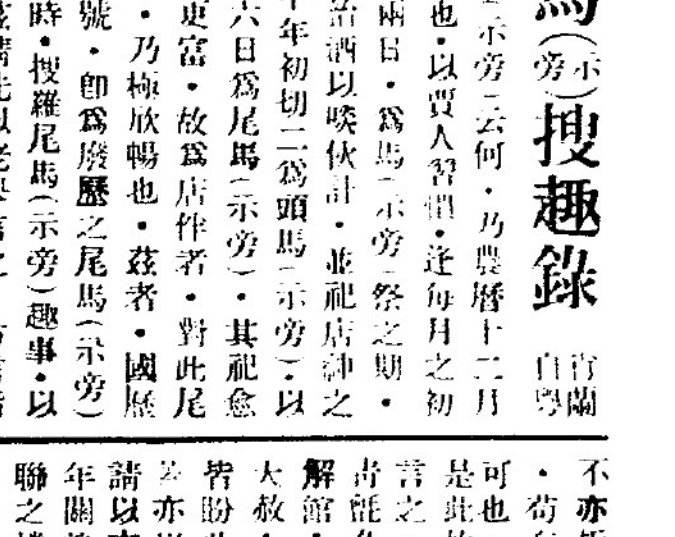 馬(示旁)搜趣錄
自粵
示旁 云何・乃農曆十二月
也・以賈人習慣・逢每月之初
兩日・爲馬(示旁 祭之期・
酒以啖伙計・並祀店神之
年初切二爲頭馬(示旁)・以
六日爲尾馬(示旁)・其祀愈
更富・故爲店伴者・對此尾
・乃極欣暢也・茲者・國歷
號・卽爲廢歷之尾馬(示旁)
時・搜羅尾馬(示旁)趣事・以
不亦
・苟
可也
是此
言之
解館
大赦
皆盼
亦
請以
年關
聯之